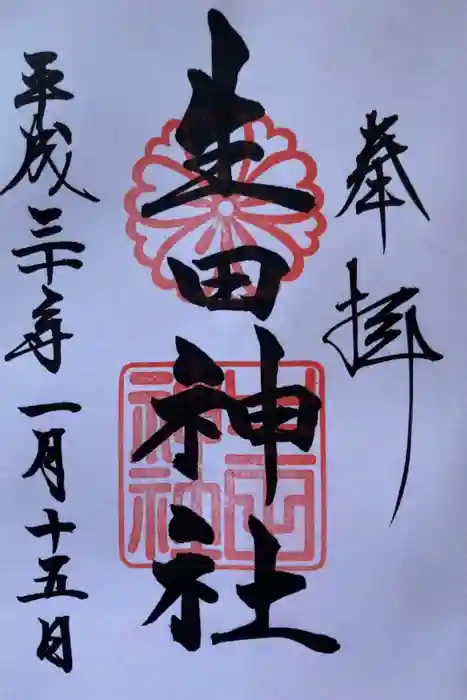 奉拝
生田神社
生田神社
平成三十年一月十五日